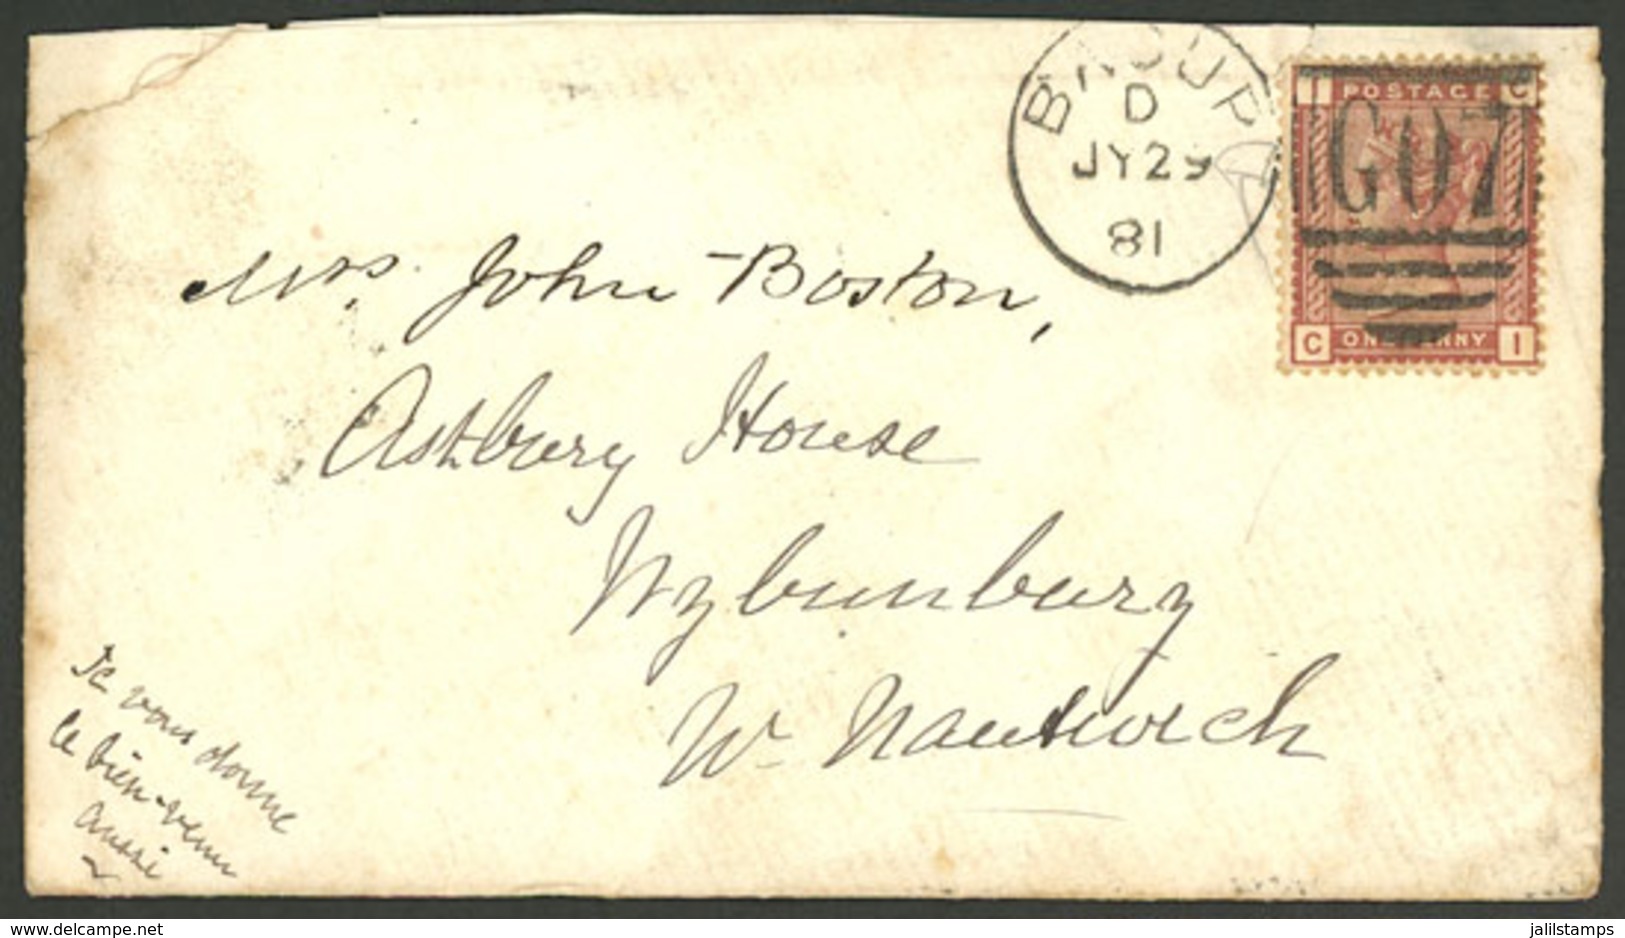 BACUP
D
JY 29
81
I POSTAGE C
G07
C ONE PENNY I
Mrs. John Boston,
Astbury House
Wybunbury
Nr Nantwich
Je vous donne
le bien-venu
aussi
www.delcampe.net
jalilstamps